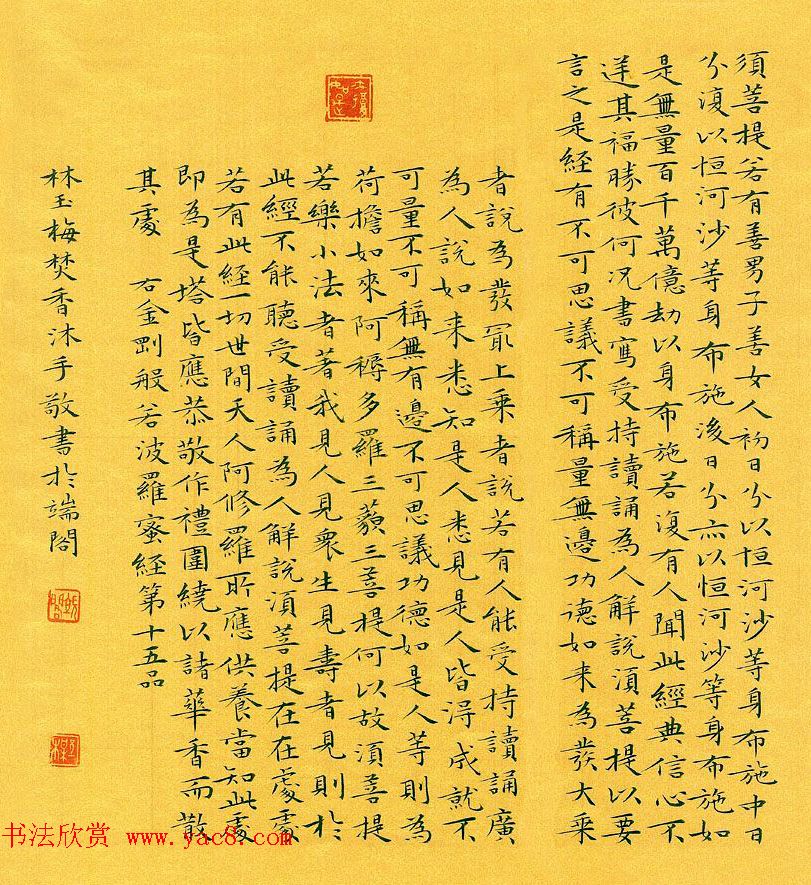 須菩提若有善男子善女人初日分以恒河沙等身布施中日
分復以恒河沙等身布施後日分亦以恒河沙等身布施如
是無量百千萬億劫以身布施若復有人聞此經典信心不
逆其福勝彼何況書寫受持讀誦為人解說須菩提以要
言之是經有不可思議不可稱量無邊功德如来為發大乘
者說為發冣上乘者說若有人能受持讀誦廣
為人說如来悉知是人悉見是人皆得成就不
可量不可稱無有邊不可思議功德如是人等則為
荷擔如來阿耨多羅三藐三菩提何以故須菩提
若樂小法者著我見人見衆生見壽者見則於
此經不能聽受讀誦為人解說須菩提在在處處
若有此經一切世間天人阿修羅所應供養當知此處
即為是塔皆應恭敬作禮圍繞以諸華香而散
其處 右金剛般若波羅蜜經第十五品
林玉梅焚香沐手敬書於端閣
书法欣赏 www.yac8.com